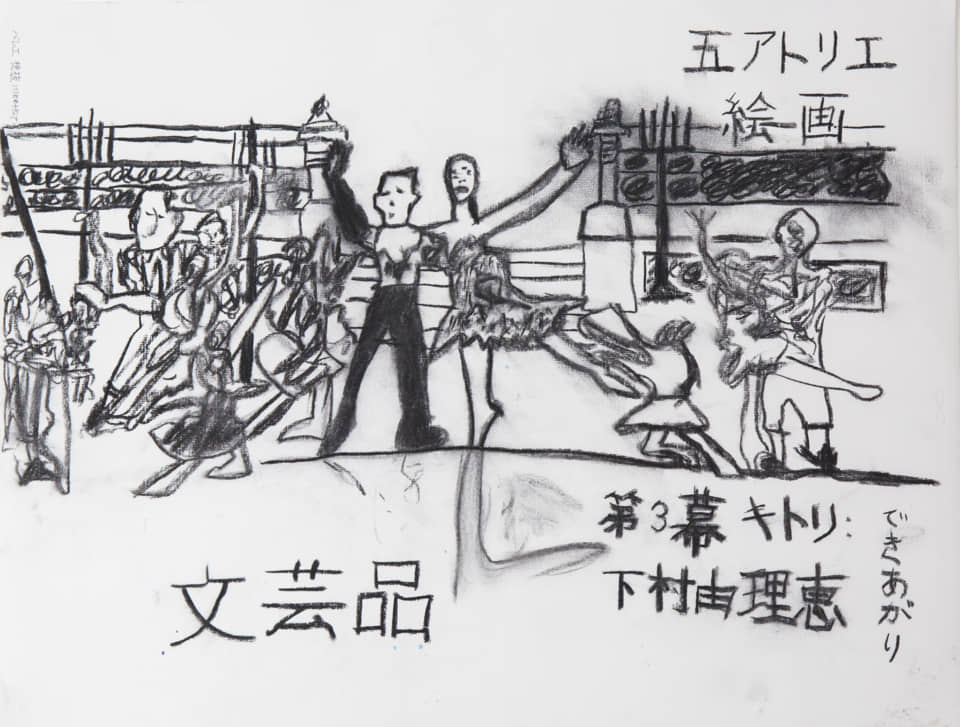 五アトリエ
絵画
第3幕 キトリ:
下村由理恵
できあがり
文芸品